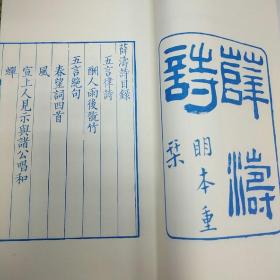 薛濤
詩
明本重
栞
薛濤詩目錄
五言律詩
酬人雨後玩竹
五言絕句
春望詞四首
風
宣上人見示與諸公唱和
蟬